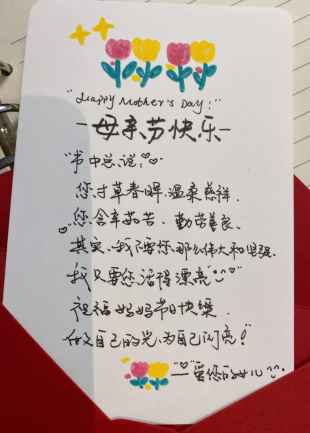 "Happy Mother's Day!"
一母亲节快乐一
"书中总说:
您寸草春晖,温柔慈祥.
您含辛茹苦.勤劳善良.
其实,我不要您那么伟大和坚强.
我只要您活得漂亮"
祝福妈妈节日快乐.
做自己的光,为自己闪亮!"
——爱您的女儿